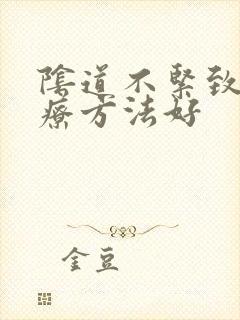 陰道不緊致
療方法好
金豆